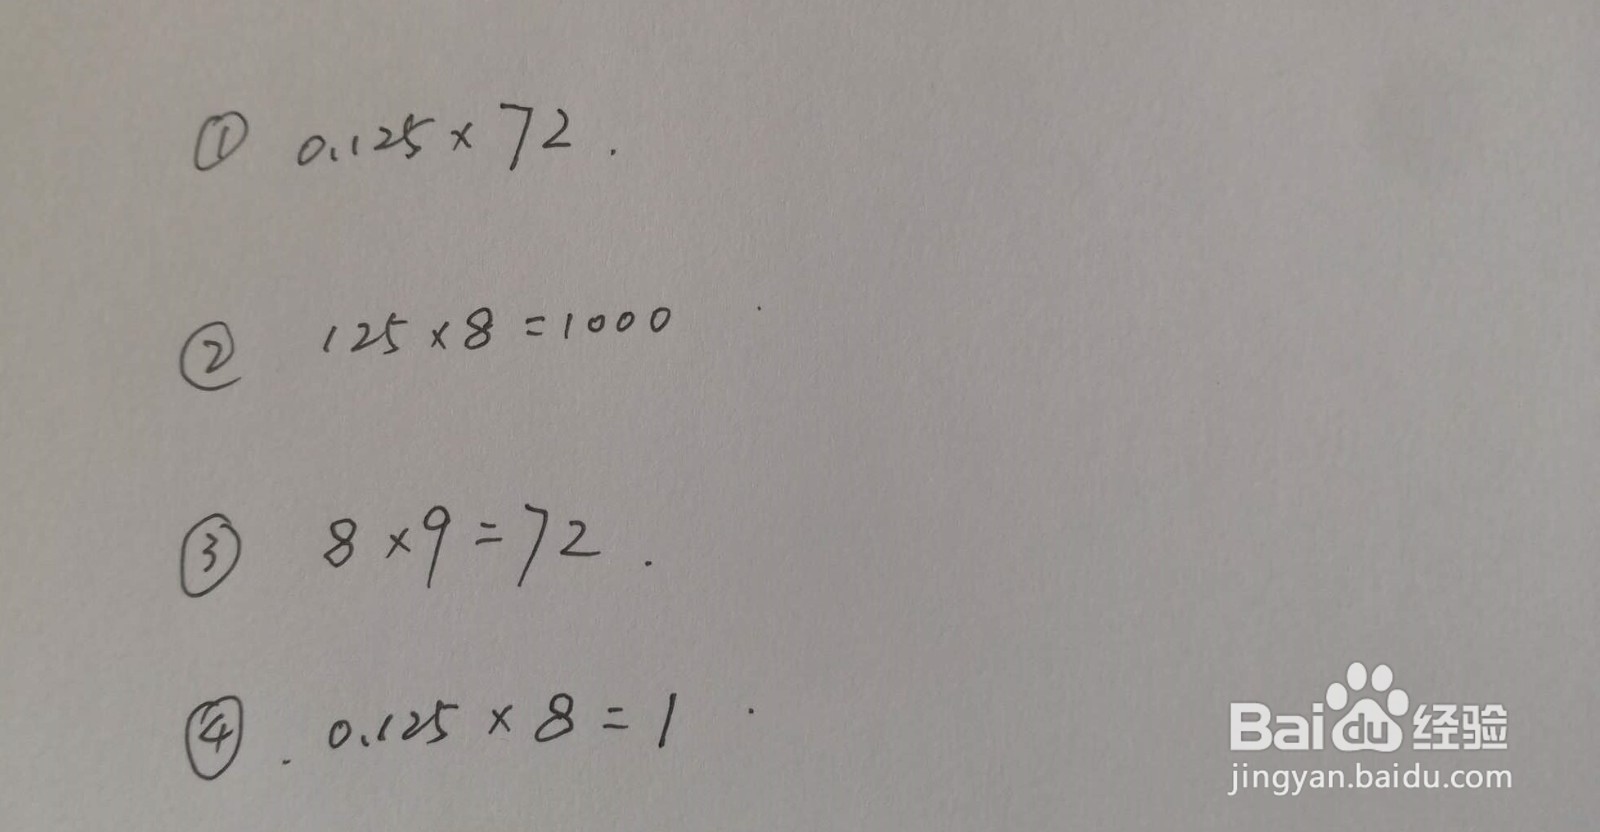 ① 0.125 × 72.
② 125 × 8 = 1000
③ 8 × 9 = 72.
④. 0.125 × 8 = 1.
Bai du 经验
jingyan.baidu.com